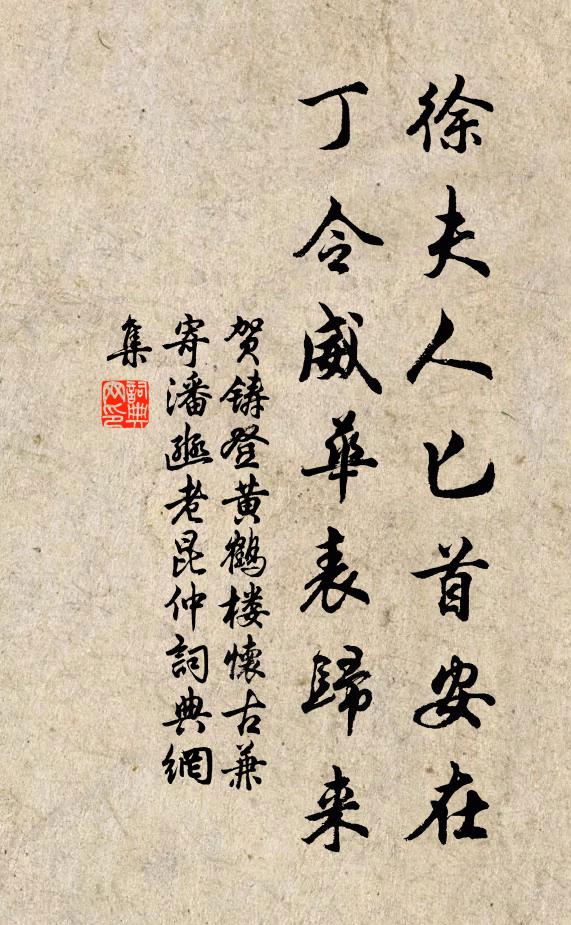 徐夫人匕首安在
丁令威華表歸来
贺鑄登黄鶴楼懷古兼
寄潘豳老昆仲詞典網
集
詞典网印